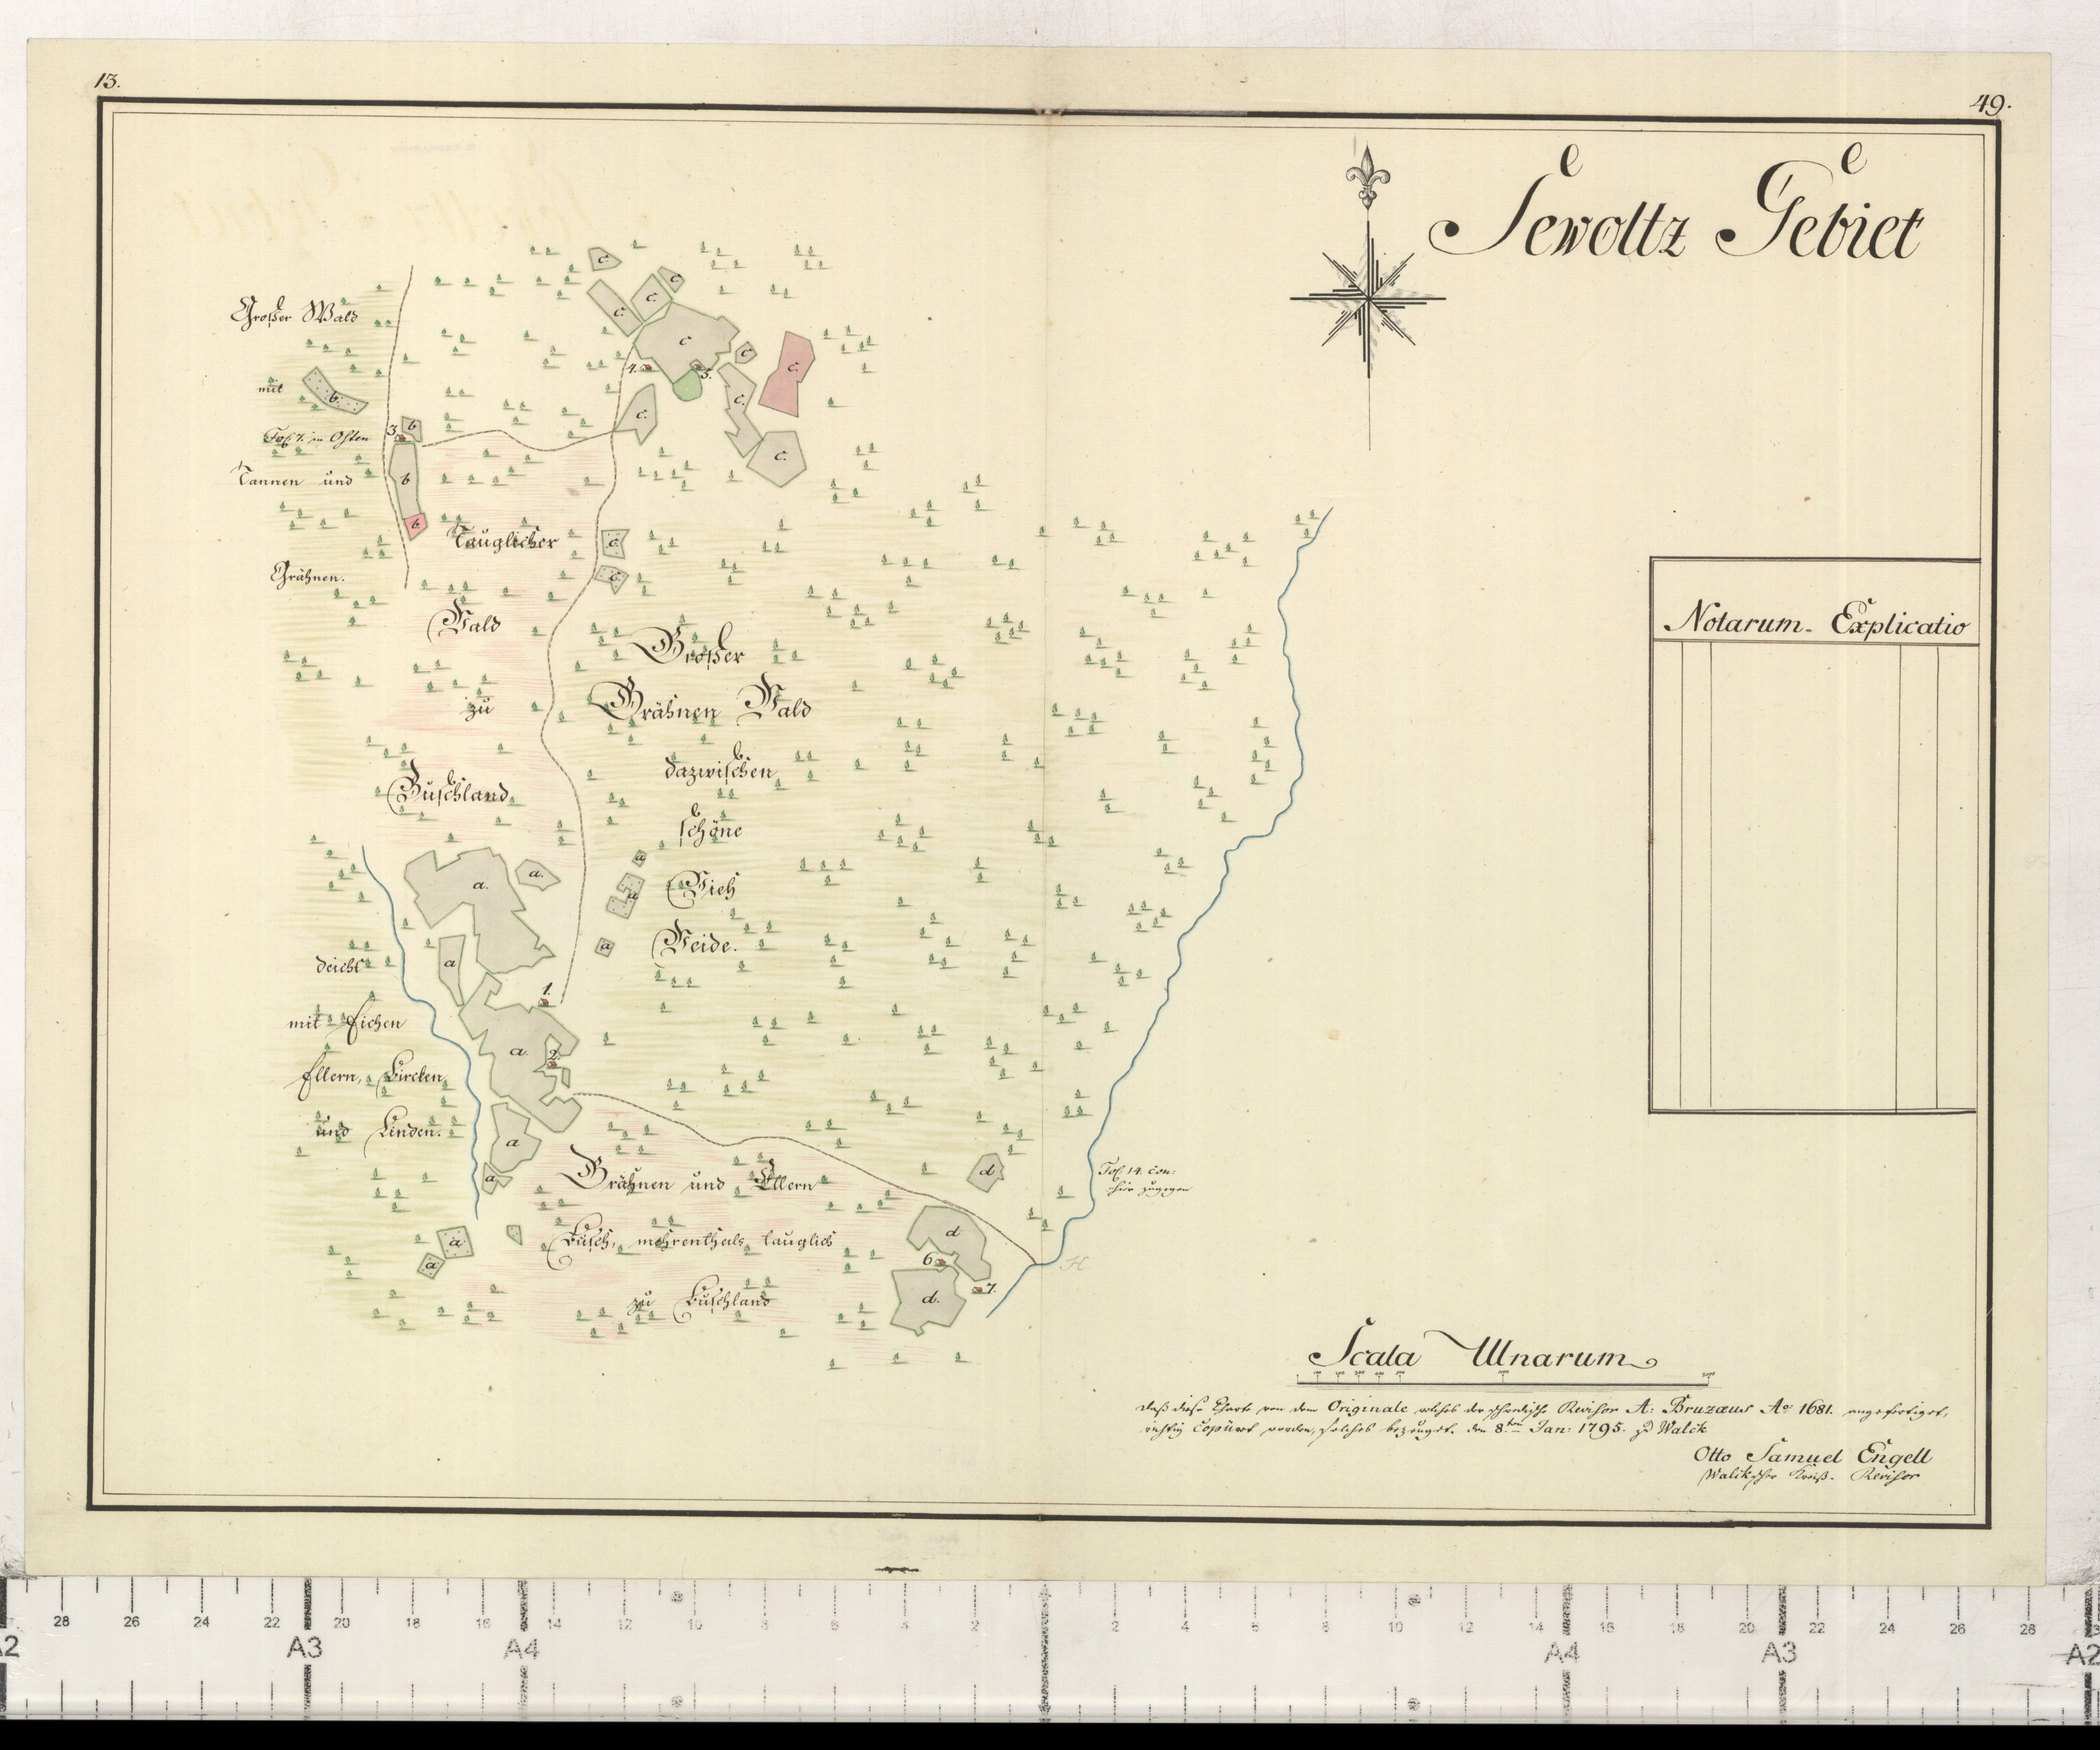 13.
49.
Sewoltz Gebiet
Großer Wald
mit
Fol. 7. in Osten
Tannen und
Grähnen.
Tauglicher
Wald
zu
Buschland
Großer
Grähnen Wald
dazwischen
schöne
Vieh
Weide.
deicht
mit Eichen
Ellern, Bircken
und Linden.
Grähnen und Ellern
Busch, mehrentheils tauglich
zu Buschland
c. c. c. c. c. c. c. c. c. c. c. c.
b. b b b
a. a. a a a a a. a a a a
d d d.
1.
2.
3.
4.
5.
6.
7.
Fol. 14. con:
hier zugegen
H
Notarum Explicatio
Scala Ulnarum
Daß diese Charte von dem Originale welches der schwedische Revisor A: Bruzæus Aº 1681. angefertiget,
richtig Copiirt worden, solches bezeuget. den 8ten Jan: 1795. zu Walck
Otto Samuel Engell
Walckscher Kreiß- Revisor
28 26 24 22 20 18 16 14 12 10 8 6 4 2 2 4 6 8 10 12 14 16 18 20 22 24 26 28
A2 A3 A4 A4 A3 A2